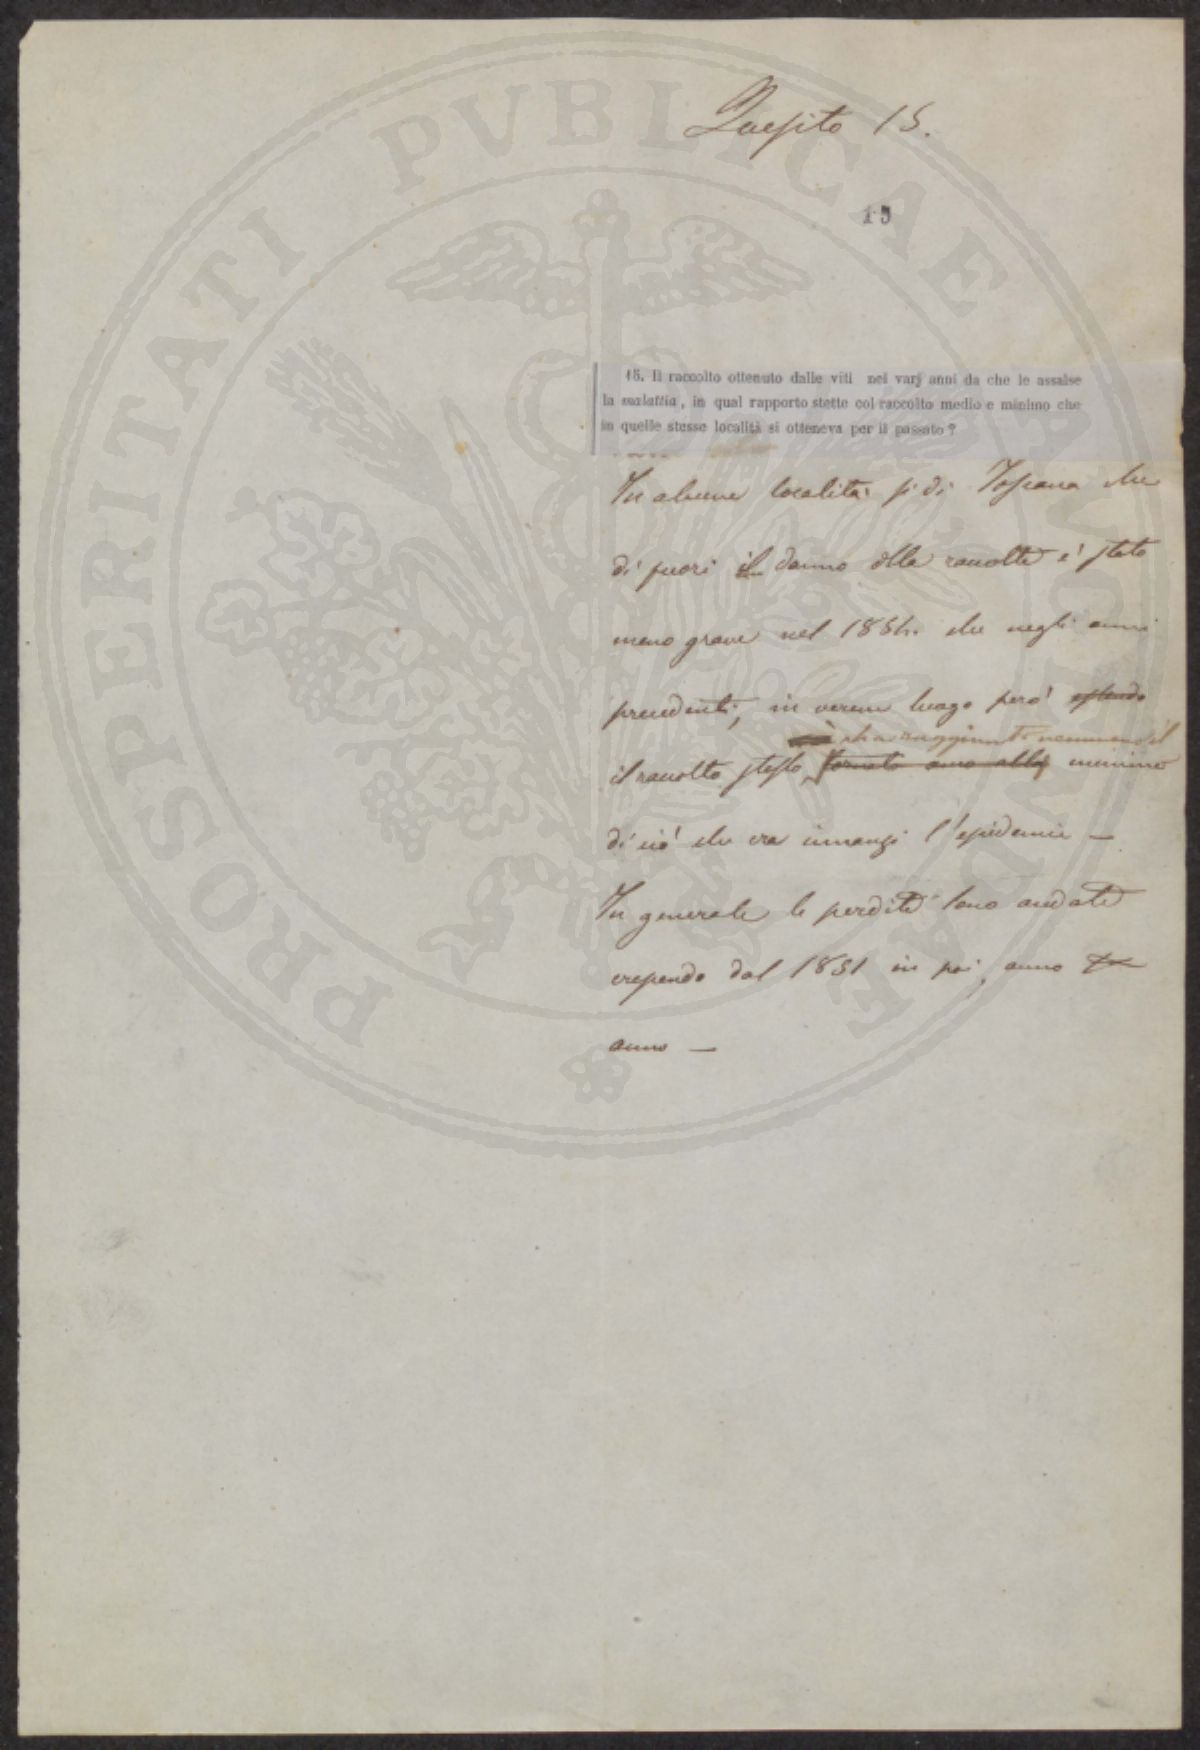 Quesito 15.
15
15. Il raccolto ottenuto dalle viti nei varj anni da che le assalse
la malattia, in qual rapporto stette col raccolto medio e minimo che
in quelle stesse località si otteneva per il passato?
In alcune località sì di Toscana che
di fuori il danno alle raccolte è stato
meno grave nel 1854. che negli anni
precedenti, in verun luogo però essendo
ha raggiunto nemmeno il
il raccolto stesso tornato anco alla minimo
di ciò che era innanzi l'epidemia —
In generale le perdite sono andate
crescendo dal 1851 in poi, anno
anno —
PROSPERITATI PVBLICAE AVGENDAE